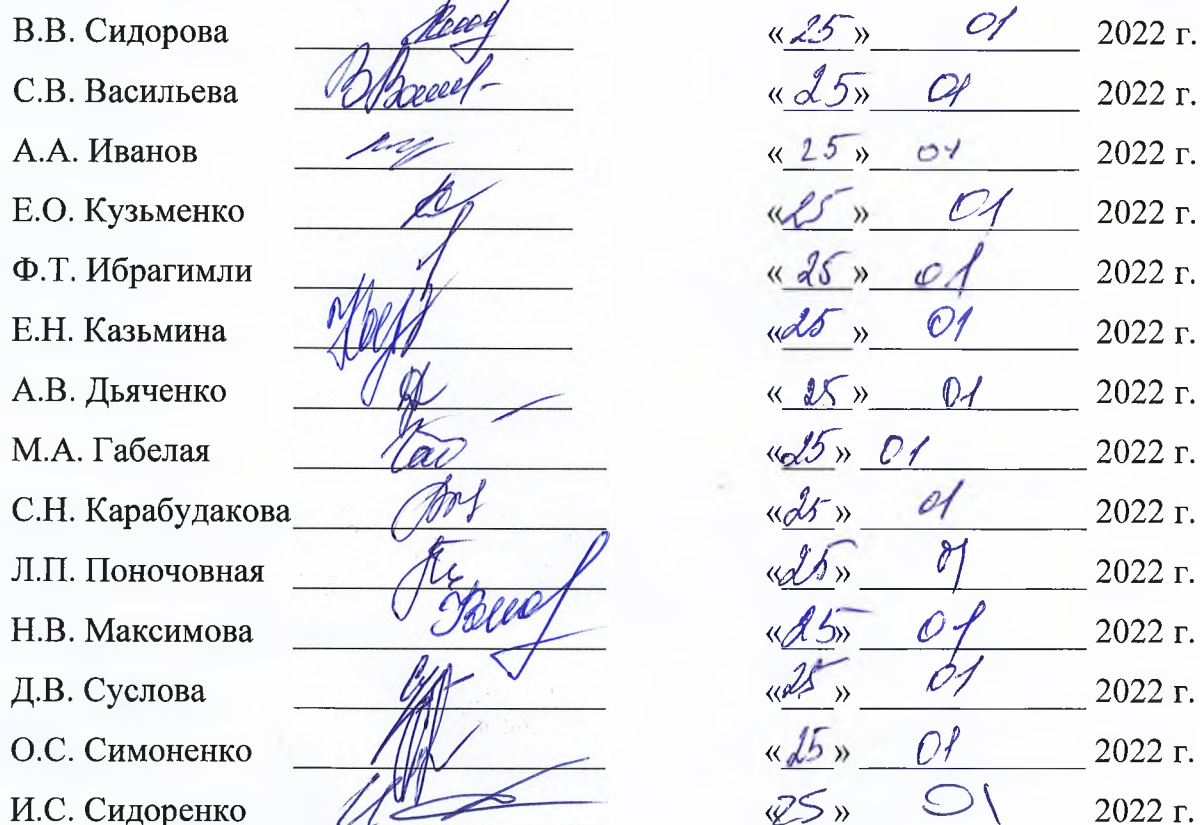 В.В. Сидорова «25» 01 2022 г.
С.В. Васильева «25» 01 2022 г.
А.А. Иванов «25» 01 2022 г.
Е.О. Кузьменко «25» 01 2022 г.
Ф.Т. Ибрагимли «25» 01 2022 г.
Е.Н. Казьмина «25» 01 2022 г.
А.В. Дьяченко «25» 01 2022 г.
М.А. Габелая «25» 01 2022 г.
С.Н. Карабудакова «25» 01 2022 г.
Л.П. Поночовная «25» 01 2022 г.
Н.В. Максимова «25» 01 2022 г.
Д.В. Суслова «25» 01 2022 г.
О.С. Симоненко «25» 01 2022 г.
И.С. Сидоренко «25» 01 2022 г.